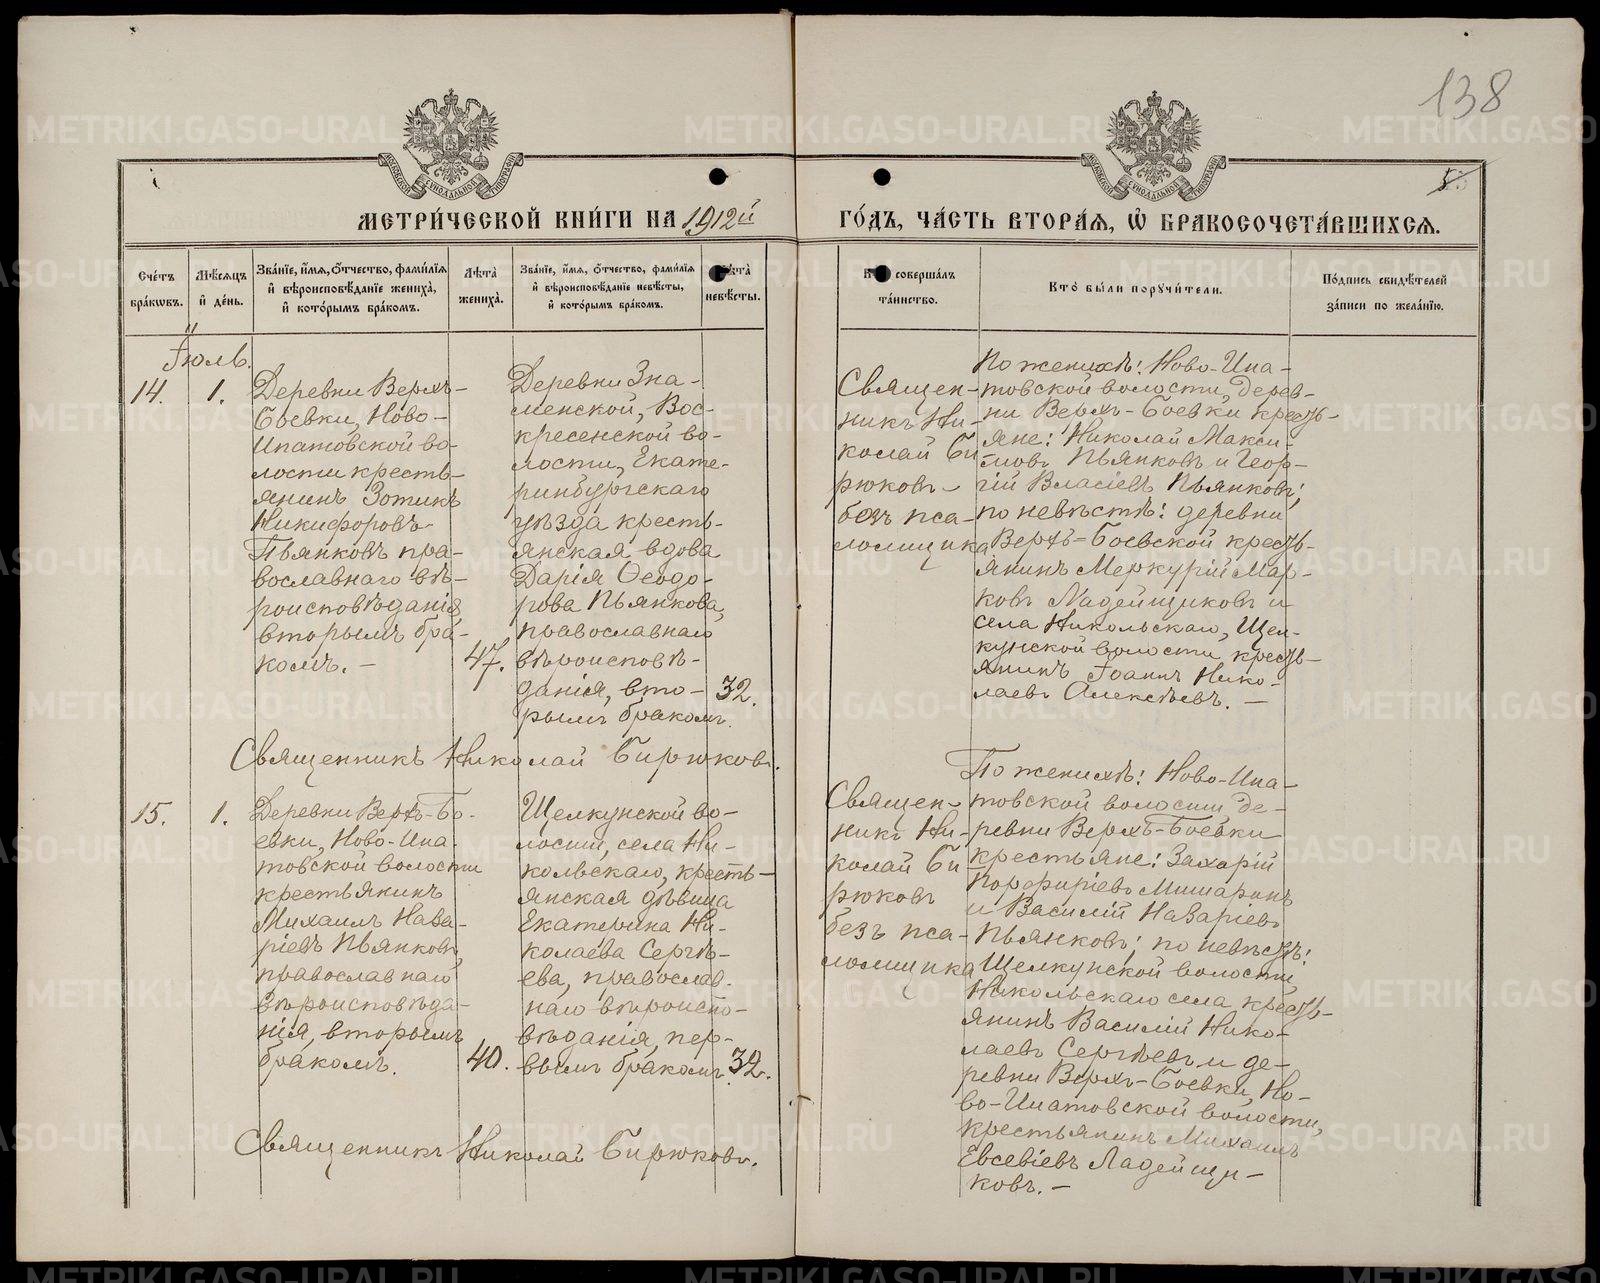 138
5
МЕТРИ́ЧЕСКОЙ КНИ́ГИ НА 1912й ГО́ДЪ, ЧА́СТЬ ВТОРА́Я, Ѡ҆ БРАКОСОЧЕТА́ВШИХСЯ.
Сче́тъ бра́кѡвъ.
Мѣ́сяцъ й де́нь.
Зва́нїе, и́мя, ѻ́тчество, фами́лїя й вѣроисповѣ́данїе жениха̀, й кото́рымъ бра́комъ.
Лѣ́та жениха̀.
Зва́нїе, и́мя, ѻ́тчество, фами́лїя й вѣроисповѣ́данїе невѣ́сты, й кото́рымъ бра́комъ.
Лѣ́та невѣ́сты.
Кто̀ соверша́лъ та́инство.
Кто̀ бы́ли порꙋчи́тели.
По́дпись свидѣ́телей за́писи по жела́нїю.
Іюль.
14.
1.
Деревни Верхъ-
Боевки, Ново-
Ипатовской во-
лости кресть-
янинъ Зотикъ
Никифоровъ
Пьянковъ пра-
вославнаго вѣ-
роисповѣданія,
вторымъ бра-
комъ. –
47.
Деревни Зна-
менской, Вос-
кресенской во-
лости, Екате-
ринбургскаго
уѣзда кресть-
янская вдова
Дарія Ѳеодо-
рова Пьянкова,
православнаго
вѣроисповѣ-
данія, вто-
рымъ бракомъ.
32.
Священ-
никъ Ни-
колай Би-
рюковъ –
безъ пса-
ломщика
По женихѣ: Ново-Ипа-
товской волости, дерев-
ни Верхъ-Боевки кресть-
яне: Николай Макси-
мовъ Пьянковъ и Геор-
гій Власіевъ Пьянковъ;
по невѣстѣ: деревни
Верхъ-Боевской кресть-
янинъ Меркурій Мар-
ковъ Ладейщиковъ и
села Никольскаго, Щел-
кунской волости кресть-
янинъ Іоаннъ Нико-
лаевъ Алексѣевъ. –
Священникъ Николай Бирюковъ.
15.
1.
Деревни Верхъ-Бо-
евки, Ново-Ипа-
товской волости
крестьянинъ
Михаилъ Наза-
ріевъ Пьянковъ,
православнаго
вѣроисповѣда-
нія, вторымъ
бракомъ.
40.
Щелкунской во-
лости, села Ни-
кольскаго, кресть-
янская дѣвица
Екатерина Ни-
колаева Сергѣ-
ева, православ-
наго вѣроиспо-
вѣданія, пер-
вымъ бракомъ.
32.
Священ-
никъ Ни-
колай Би-
рюковъ
безъ пса-
ломщика
По женихѣ: Ново-Ипа-
товской волости де-
ревни Верхъ-Боевки
крестьяне: Захарій
Порфиріевъ Мишаринъ
и Василій Назаріевъ
Пьянковъ; по невѣстѣ:
Щелкунской волости,
Никольскаго села кресть-
янинъ Василій Нико-
лаевъ Сергѣевъ и де-
ревни Верхъ-Боевки, Но-
во-Ипатовской волости,
крестьянинъ Михаилъ
Евсевіевъ Ладейщи-
ковъ. –
Священникъ Николай Бирюковъ.